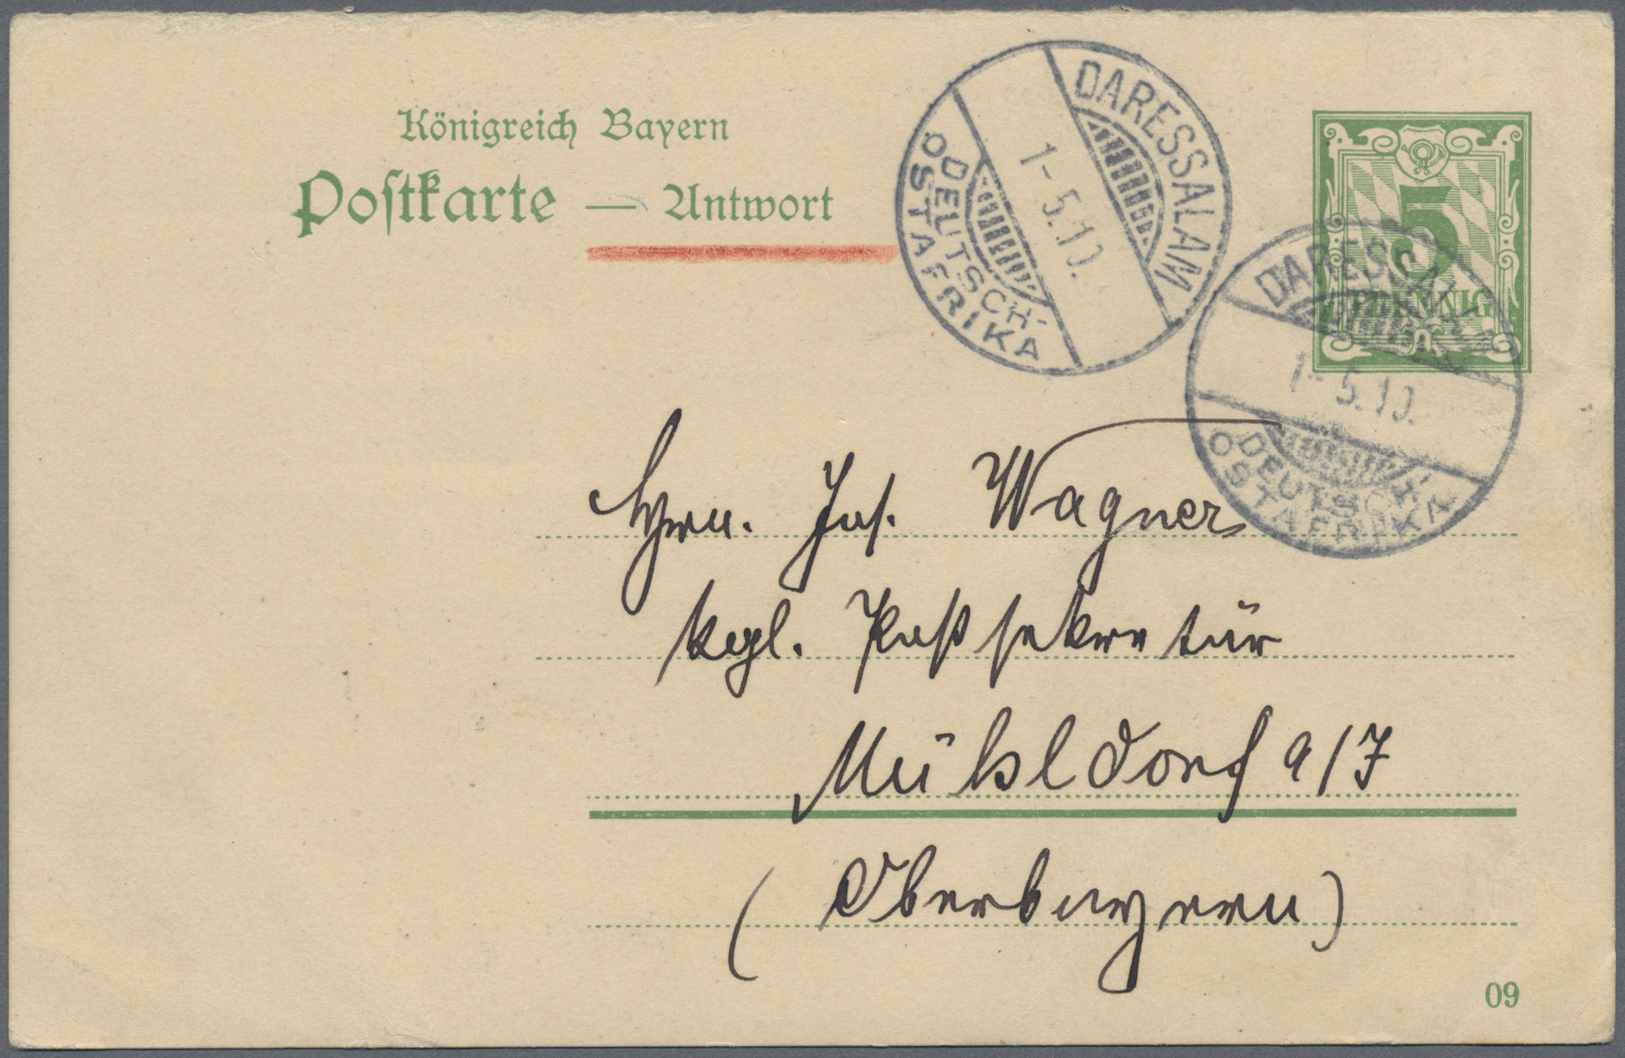 Königreich Bayern
Postkarte — Antwort
DARESSALAM
1-5.10.
DEUTSCH-
OSTAFRIKA
5
PFENNIG
DARESSALAM
1-5.10.
DEUTSCH-
OSTAFRIKA
Herrn. Jos. Wagner
kgl. Postsekretär
Mühldorf a/I
(Oberbayern)
09